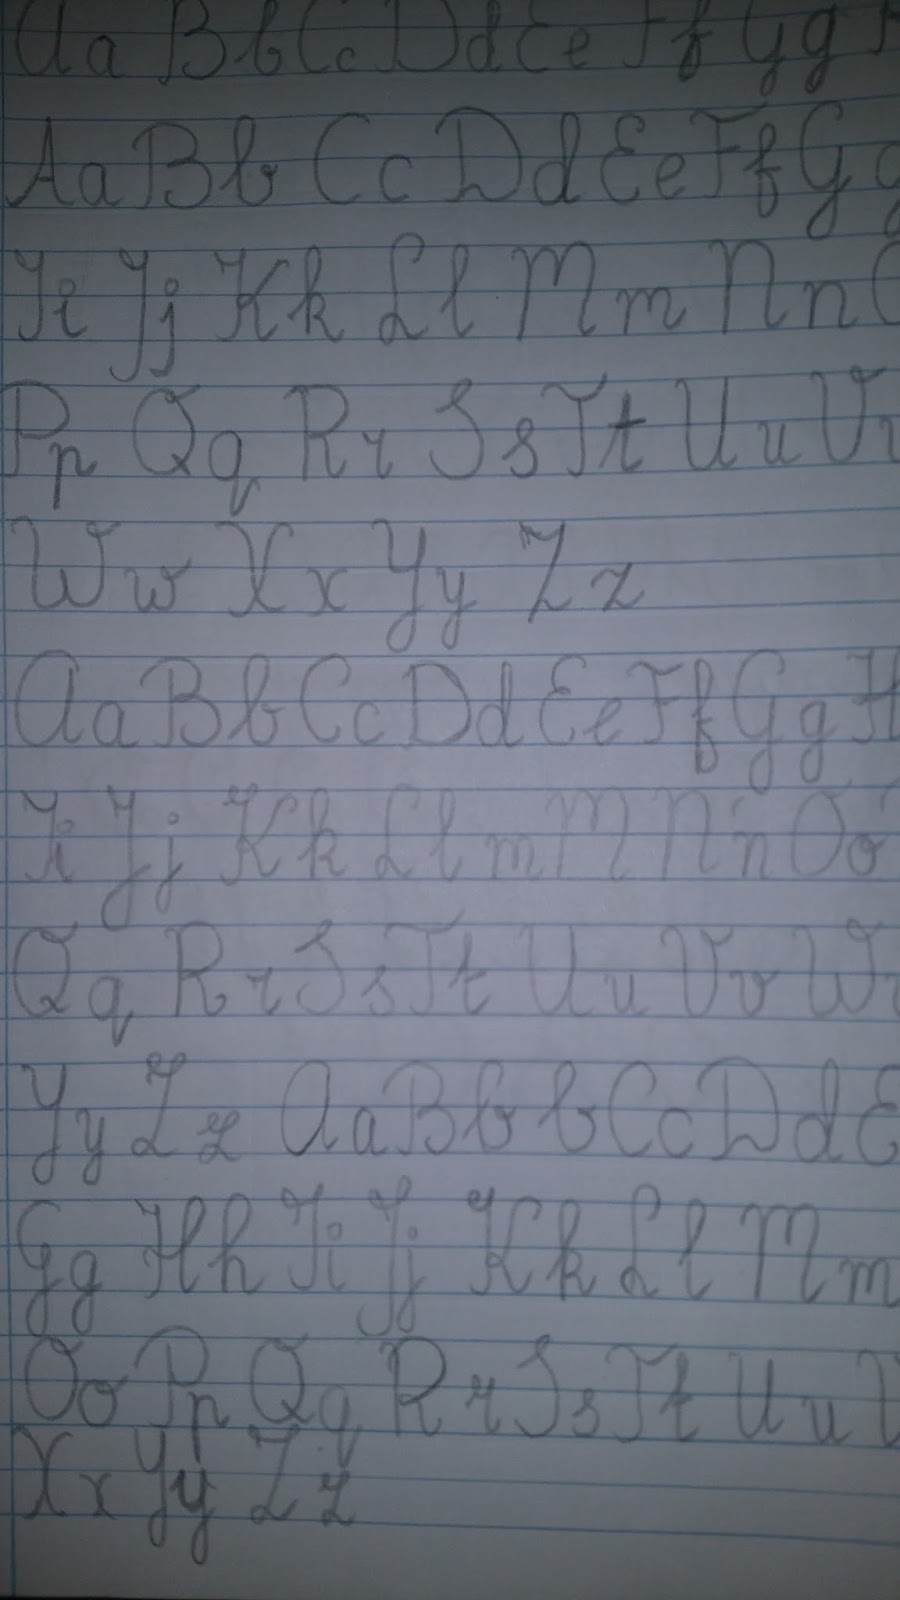 Aa Bb Cc Dd Ee Ff Gg H
Aa Bb Cc Dd Ee Ff G g
Ii Jj Kk Ll Mm Nn O
Pp Qq Rr Ss Tt Uu Vv
Ww Xx Yy Zz
Aa Bb Cc Dd Ee Ff Gg H
Ii Jj Kk Ll mM Nn Oo
Qq Rr Ss Tt Uu Vv W
Yy Zz Aa Bb b Cc Dd E
Gg Hh Ii Jj Kk Ll Mm
Oo Pp Qq Rr Ss Tt Uu V
Xx Yy Zz